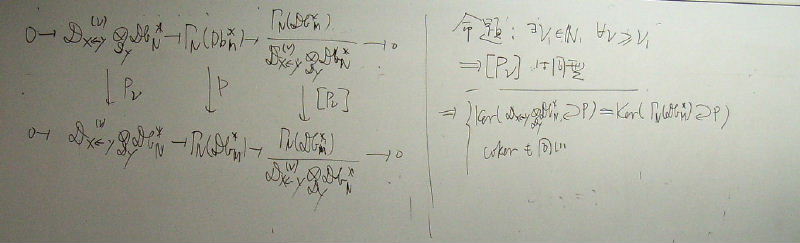 0 → 𝒟_{X←Y}^{(ν)} ⊗_{𝒟_Y} Db_N^* → Γ_N(Db_M^*) → Γ_N(Db_M^*) / 𝒟_{X←Y}^{(ν)} ⊗_{𝒟_Y} Db_N^* → 0
↓ P_ν ↓ P ↓ [P_ν]
0 → 𝒟_{X←Y}^{(ν)} ⊗_{𝒟_Y} Db_N^* → Γ_N(Db_M^*) → Γ_N(Db_M^*) / 𝒟_{X←Y}^{(ν)} ⊗_{𝒟_Y} Db_N^* → 0
命題: ∃ν_1 ∈ N, ∀ν ≥ ν_1
⇒ [P_ν] は同型
⇒ { Ker(𝒟_{X←Y} ⊗_{𝒟_Y} Db_N^* ⊃ P) = Ker(Γ_N(Db_M^*) ⊃ P)
coker も同じ